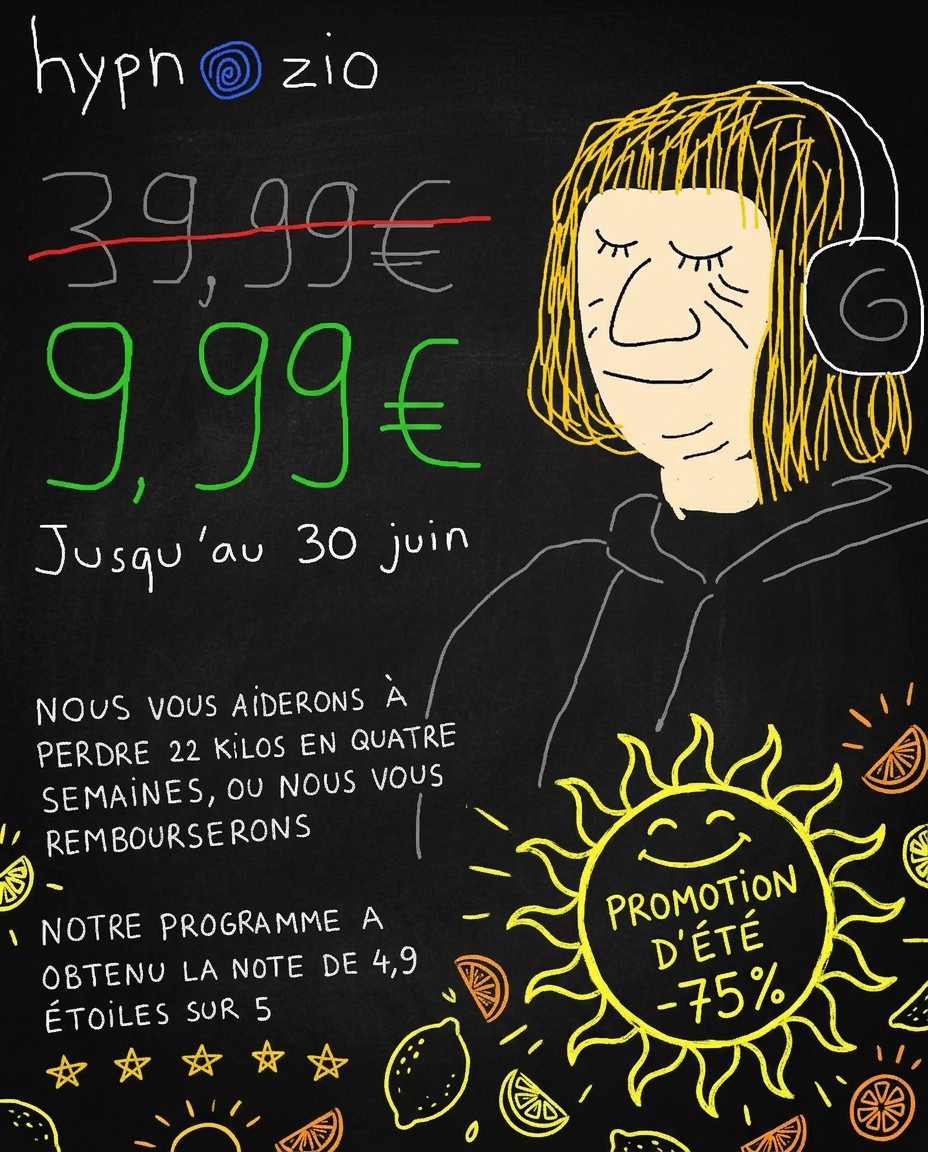 hypnozio
39,99€
9,99€
Jusqu'au 30 juin
NOUS VOUS AIDERONS À
PERDRE 22 KILOS EN QUATRE
SEMAINES, OU NOUS VOUS
REMBOURSERONS
NOTRE PROGRAMME A
OBTENU LA NOTE DE 4,9
ÉTOILES SUR 5
PROMOTION
D'ÉTÉ
-75%